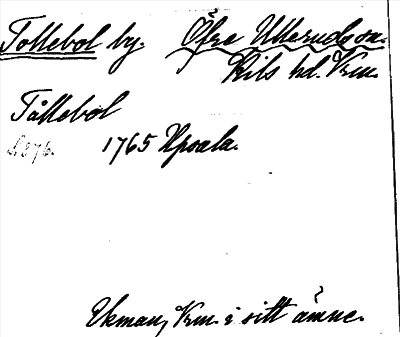 Tollebol by. Öfre Ulleruds sn.
Kils hd. Vrm.
Tållebol
1765 Upsala.
Ekman, Vrm. i sitt ämne.